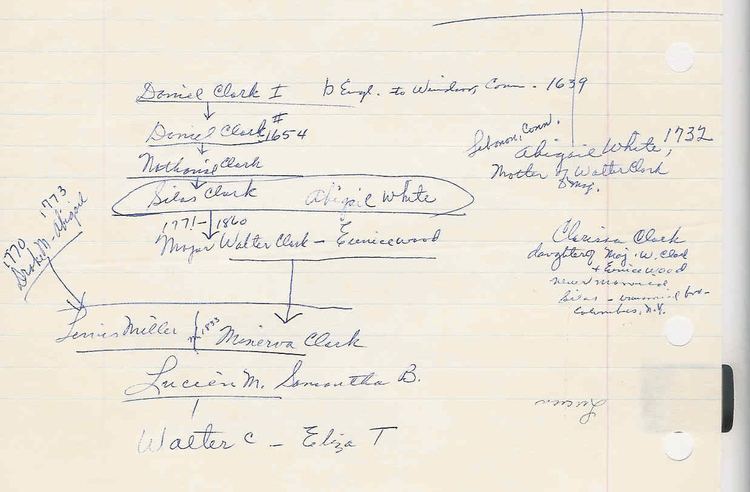 Daniel Clark I b Engl. to Windsor, Conn. 1639
Daniel Clark II 1654
Nathaniel Clark
Silas Clark Abigail White
1771-1860
Major Walter Clark - Eunice Wood
1770 1773
Abigail
Lewis Miller m 1833 Minerva Clark
Lucien M. Samantha B.
Walter C - Eliza T
Lebanon, Conn.
Abigail White, 1732
Mother of Walter Clark
Maj.
Clarissa Clark
daughter of Maj. W. Clark
+ Eunice Wood
never married
Silas - unmarried bro-
Columbus, N.Y.
Lucien